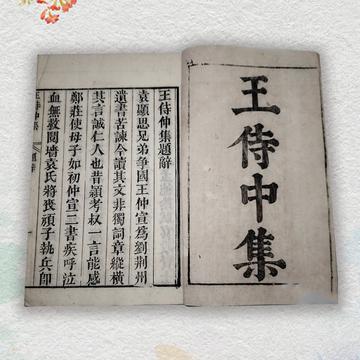 王侍中集
王侍中集題辭
袁顯思兄弟爭國王仲宣爲劉荆州
遺書苦諫今讀其文非獨詞章縱橫
其言誠仁人也昔潁考叔一言能感
鄭莊使母子如初仲宣二書疾呼泣
血無救鬩牆袁氏將喪頑子執兵卽
王侍中集 題辭